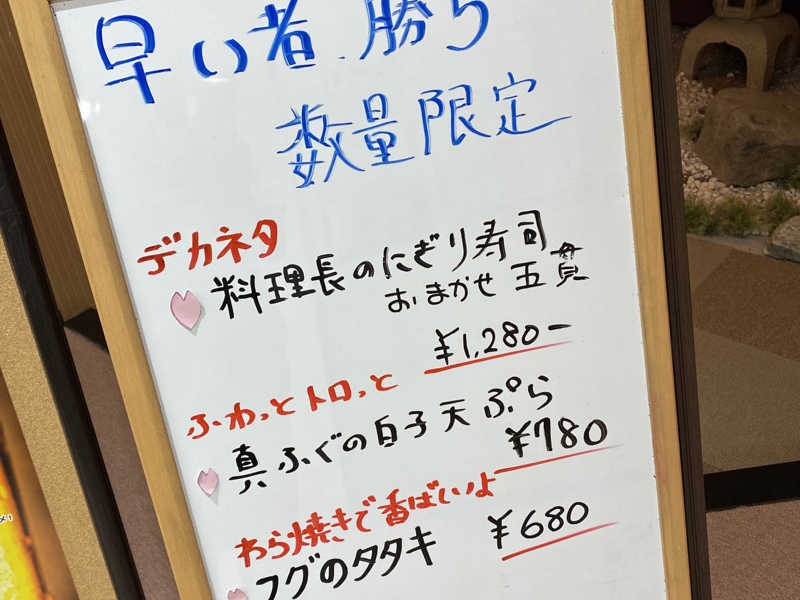 早い者勝ち
数量限定
デカネタ
料理長のにぎり寿司
おまかせ 五貫
¥1,280-
ふわっとトロッと
真ふぐの白子天ぷら
¥780
わら焼きで香ばしいよ
フグのタタキ ¥680